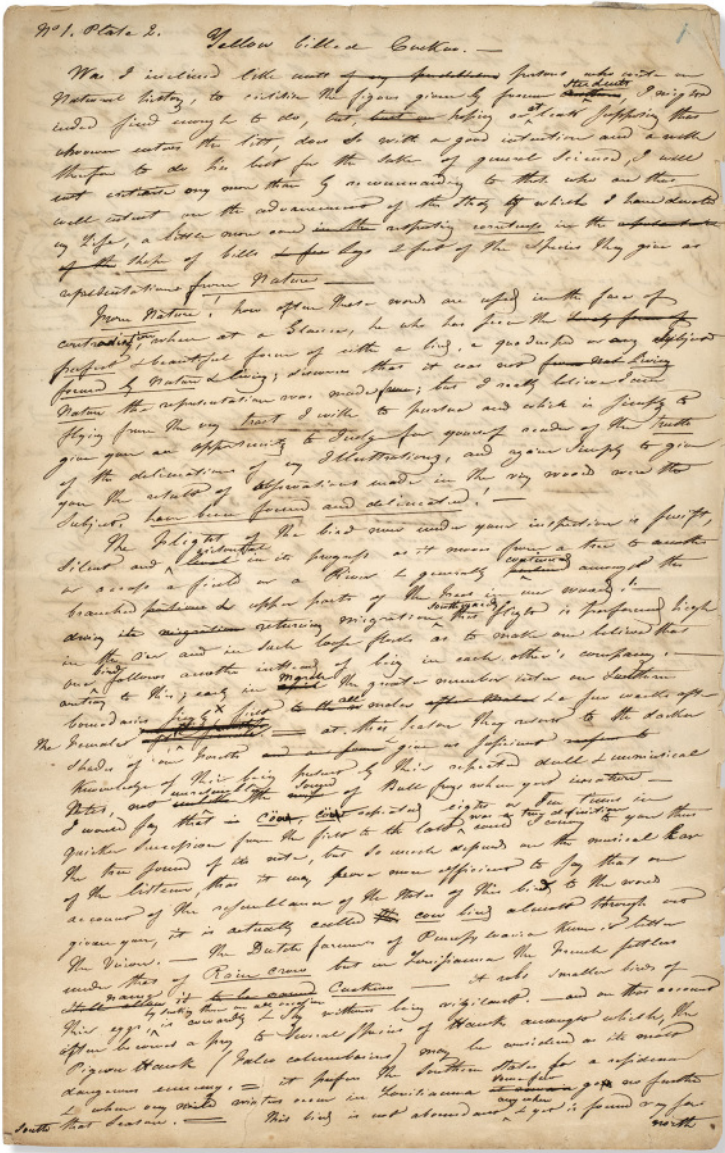 No 1. Plate 2.
Yellow billed Cuckoo. —
Was I inclined like most of my predecessors persons who write on
Natural history, to criticise the figures given by former students authors, I might
indeed find enough to do, but, hoping or at least supposing that
whoever enters the lists, does so with a good intention and a wish
therefore to do his best for the sake of general Science, I will
not criticise any more than by recommending to those who are thus
well intent on the advancement of the study of which I have devoted
my Life, a little more care in the respecting in the
of the shape of bills & legs & feet of the Species they give as
representations from Nature —
From Nature! how often these words are used in the face of
when at a Glance, he who has seen the lovely form of
perfect & beautiful form of either a bird, a quadruped or any subject
formed by Nature & living; discovers that it was not from Living
Nature the representation was made; but I really believe I am
flying from the very tract I wish to pursue and which is simply to
give you an opportunity to Judge for yourself reader of the truth
of the delineations of my Illustrations, and again simply to give
you the result of observations made in the very woods were the
Subjects have been found and delineated! —
The Flight of the bird now under your inspection is swift,
Silent and horizontal level in its progress as it moves from a tree to another
or across a field or a River & generally continued amongst the
branches & upper parts of the trees in our woods!—
during its migration returning migration southward that flight is performed high
in the air and in such loose flocks as to make one believe that
one bird follows another instead of being in each other's company. —
to this; early in March the greater number enter our Southern
boundaries singly first to the all males & a few weeks after
The Females — at this season they resort to the darker
shades of our forests give us sufficient
Knowledge of their being present by their repeated dull & unmusical
Notes, not unresembling the sound of Bull frogs when good
I would say that is cöw, cöw repeated eight or Ten times in
quicker succession from the first to the last was a true definition I convey to you thus
the true sound of its note, but so much depends on the musical Ear
of the listener, that it may prove more efficient to say that on
account of the resemblance of the Notes of this bird to the word
given you, it is actually called the cow bird almost through out
the Union. — The Dutch farmers of Pennsylvania know it better
under that of Rain crow but in Louisiana the French settlers
name it Cuckoo — it robs smaller birds of
their eggs, by sucking them on all occasion is cowardly & shy without being vigilant. — and on this account
often becomes a prey to Several species of Hawk amongst which, the
Pigeon Hawk (Falco columbarius) may be considered as its most
dangerous enemy. = it prefers the Southern States for a residence
& when very mild winters occur in Louisianna some few go no further
south that Season. — This bird is not abundant any where & yet is found very far
north